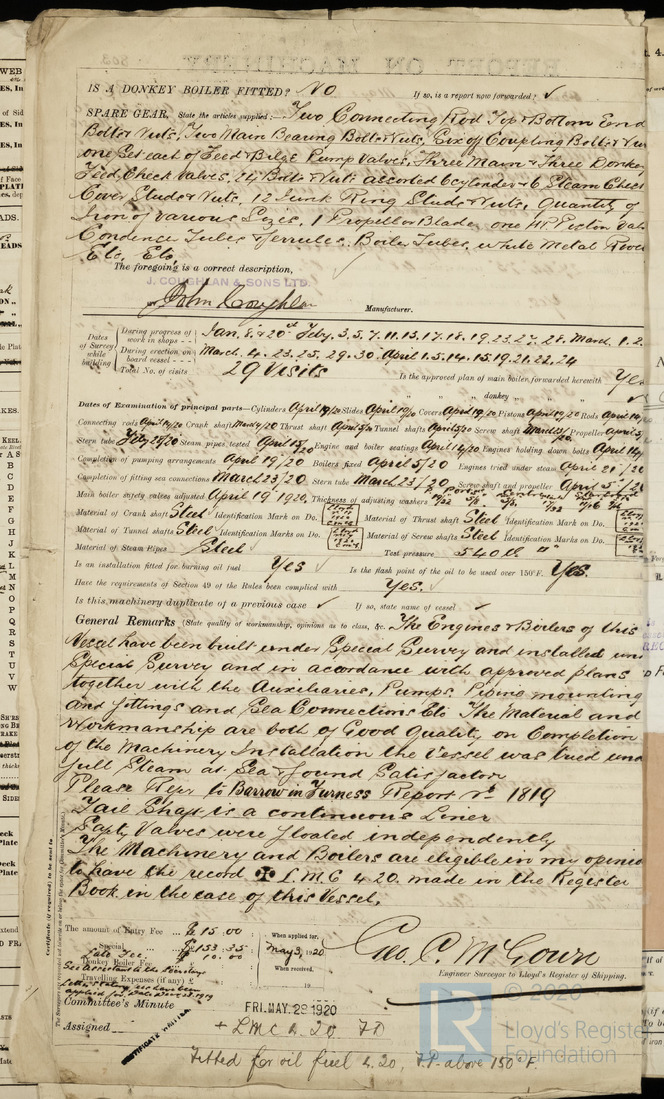 IS A DONKEY BOILER FITTED? No If so, is a report now forwarded? ✓
SPARE GEAR. State the articles supplied:— Two Connecting Rod Top & Bottom End
Bolts & Nuts, Two Main Bearing Bolts & Nuts, Six of Coupling Bolts & Nuts
one Set each of Feed & Bilge Pump Valves, Three Main & Three Donkey
Feed Check Valves, 24 Bolts & Nuts assorted 6 cylinder & 6 Steam Chest
Cover Studs & Nuts, 12 Junk Ring Studs & Nuts, Quantity of
Iron of various Sizes, 1 Propellor Blade, one HP. Piston Val
Condence Tubes & ferrules, Boiler Tubes, white Metal
Etc, Etc,
The foregoing is a correct description,
J. COUGHLAN & SONS LTD.
John Coughlan Manufacturer.
Dates of Survey while building
During progress of work in shops - - Jan. 8, & 20st Feby. 3, 5, 7, 11, 13, 17, 18, 19, 23, 27, 28. March. 1. 2.
During erection on board vessel - - - March. 4. 23. 25. 29. 30. April 1. 5. 14. 15. 19. 21. 22. 24
Total No. of visits 29 Visits
Is the approved plan of main boiler forwarded herewith Yes
" " " donkey " " " ✓
Dates of Examination of principal parts—Cylinders April 19/20 Slides April 19/20 Covers April 19/20 Pistons April 19/20 Rods April 14/
Connecting rods April 14/20 Crank shaft March 4/20 Thrust shaft April 5/20 Tunnel shafts April 5/20 Screw shaft March 23/20 Propeller April 5/
Stern tube Feby 28/20 Steam pipes tested April 15/20 Engine and boiler seatings April 14/20 Engines holding down bolts April 14/
Completion of pumping arrangements April 19/20 Boilers fixed April 5/20 Engines tried under steam April 21/20
Completion of fitting sea connections March 23/20 Stern tube March 23/20 Screw shaft and propeller April 5/20
Main boiler safety valves adjusted April 19/1920. Thickness of adjusting washers
Material of Crank shaft Steel Identification Mark on Do. Material of Thrust shaft Steel Identification Mark on Do.
Material of Tunnel shafts Steel Identification Marks on Do. Material of Screw shafts Steel Identification Marks on Do.
Material of Steam Pipes Steel Test pressure 540 lb □"
Is an installation fitted for burning oil fuel Yes ✓ Is the flash point of the oil to be used over 150°F. Yes.
Have the requirements of Section 49 of the Rules been complied with Yes. ✓
Is this machinery duplicate of a previous case ✓ If so, state name of vessel ✓
General Remarks (State quality of workmanship, opinions as to class, &c. The Engines & Boilers of this
Vessel have been built under Special Survey and installed und
Special Survey and in accordance with approved plans
together with the Auxiliaries, Pumps, Piping mounting
and fittings and Sea Connections Etc The Material and
Workmanship are both of Good Quality, on Completion
of the Machinery Installation the Vessel was tried und
full Steam at Sea & found Satisfactor
Please Refer to Barrow in Furness Report No 1819
Tail Shaft is a continuous Liner
Safty Valves were floated independently
The Machinery and Boilers are eligible in my opinio
to have the record ✠ L.M.C 4 20. made in the Register
Book in the case of this Vessel.
Certificate (if required) to be sent to
The amount of Entry Fee ... £ 15.00 When applied for,
Special ... £ 153.35 May 3, 1920
Late Fee.
Donkey Boiler Fee ... £ 10.00 When received,
Travelling Expenses (if any) £
Geo. C. McGown
Engineer Surveyor to Lloyd's Register of Shipping.
Committee's Minute FRI. MAY. 28 1920
Assigned + LMC 4. 20 FD
CERTIFICATE WRITTEN
Fitted for oil fuel 4.20, F.P. above 150°F.
© 2020
LR
Lloyd's Registe
Foundation